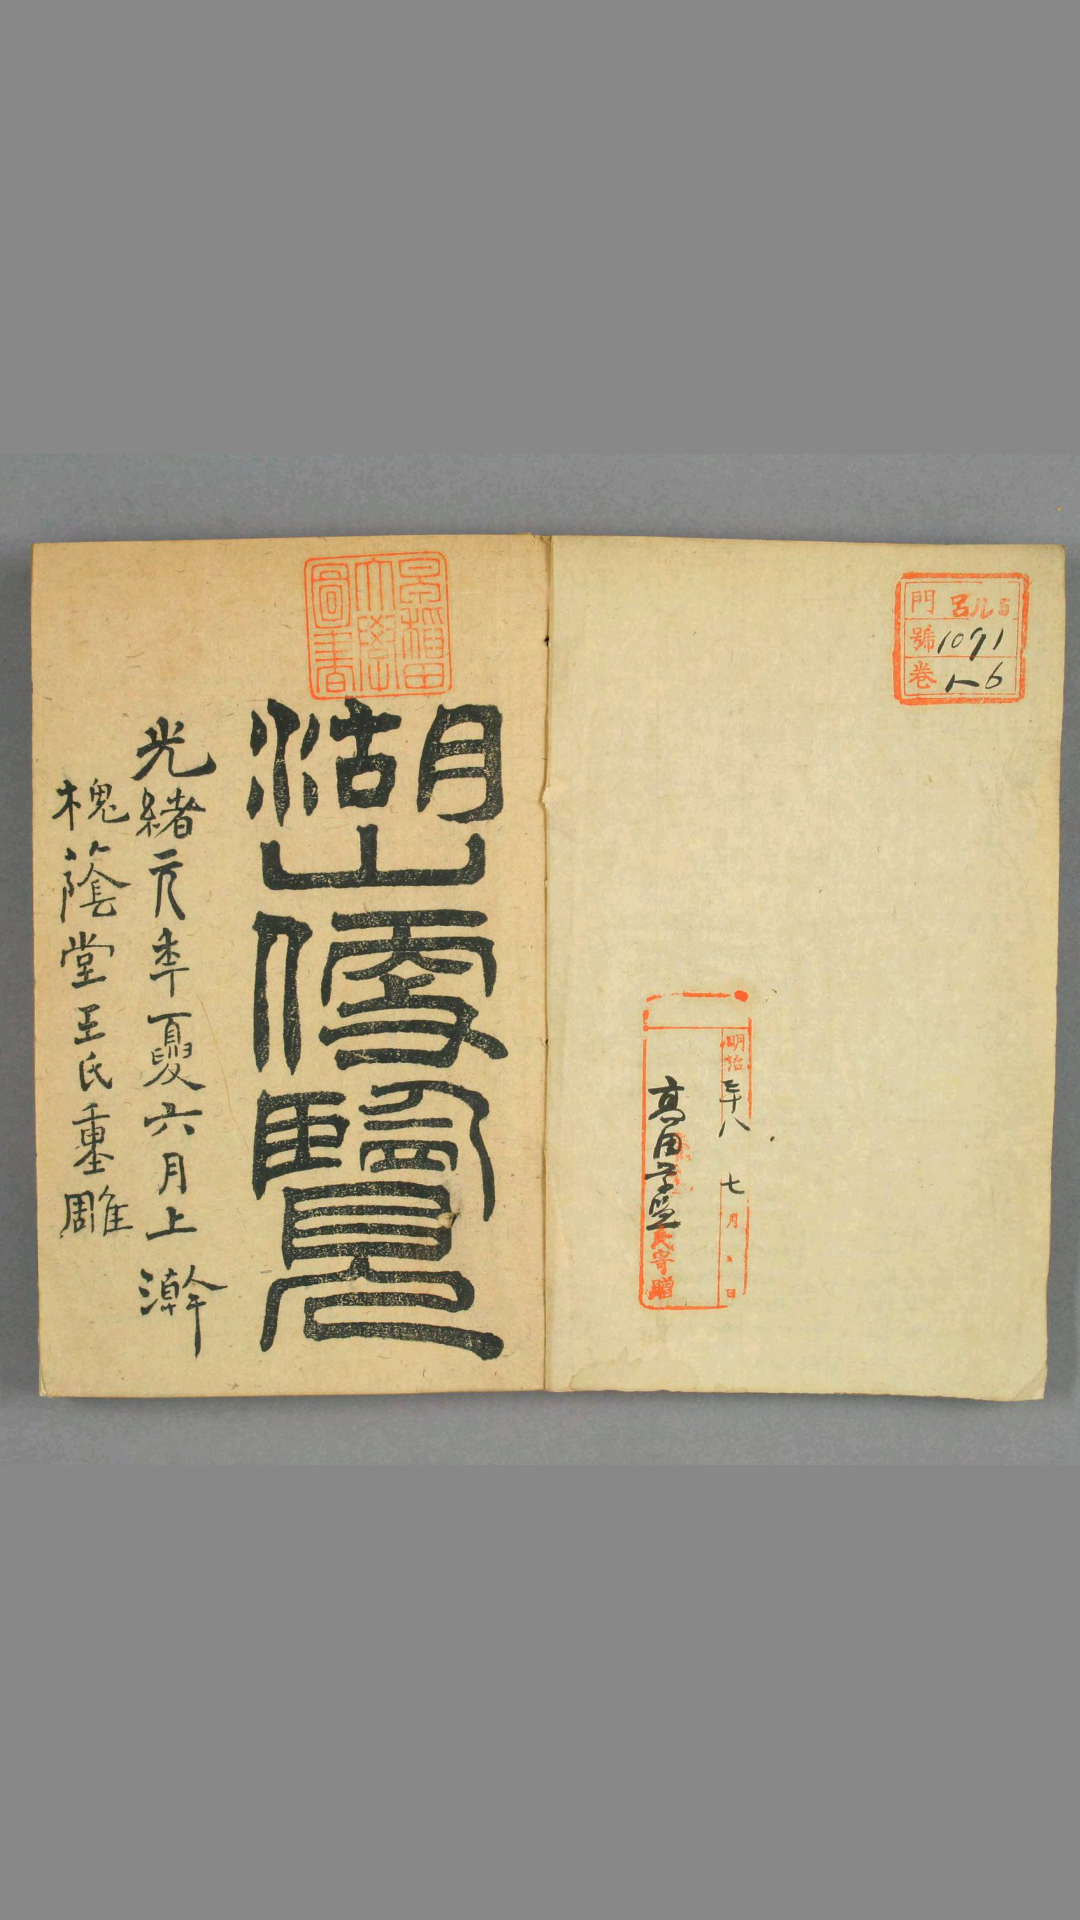 門 ル5
號 1091
卷 1-6
明治 八 七月 日
高田 氏寄贈
早稲田
大學
圖書
湖山便覽
光緒元年夏六月上澣
槐蔭堂王氏重雕